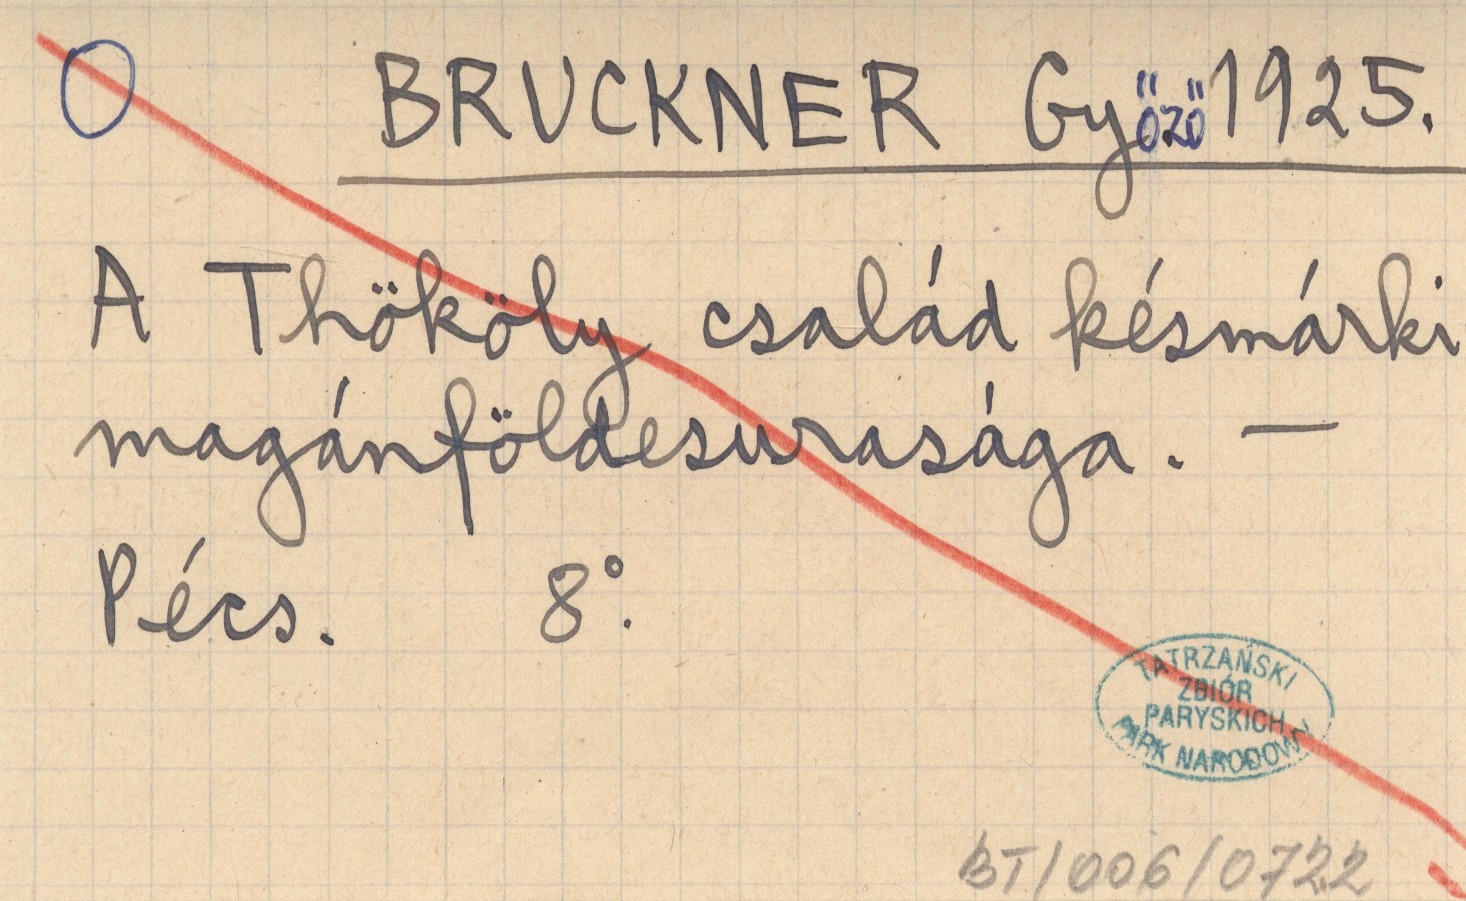 O BRUCKNER Győző 1925.
A Thököly család késmárki
magánföldesurasága. —
Pécs. 8°.
TATRZAŃSKI
ZBIÓR
PARYSKICH
PARK NARODOWY
BT/006/0722